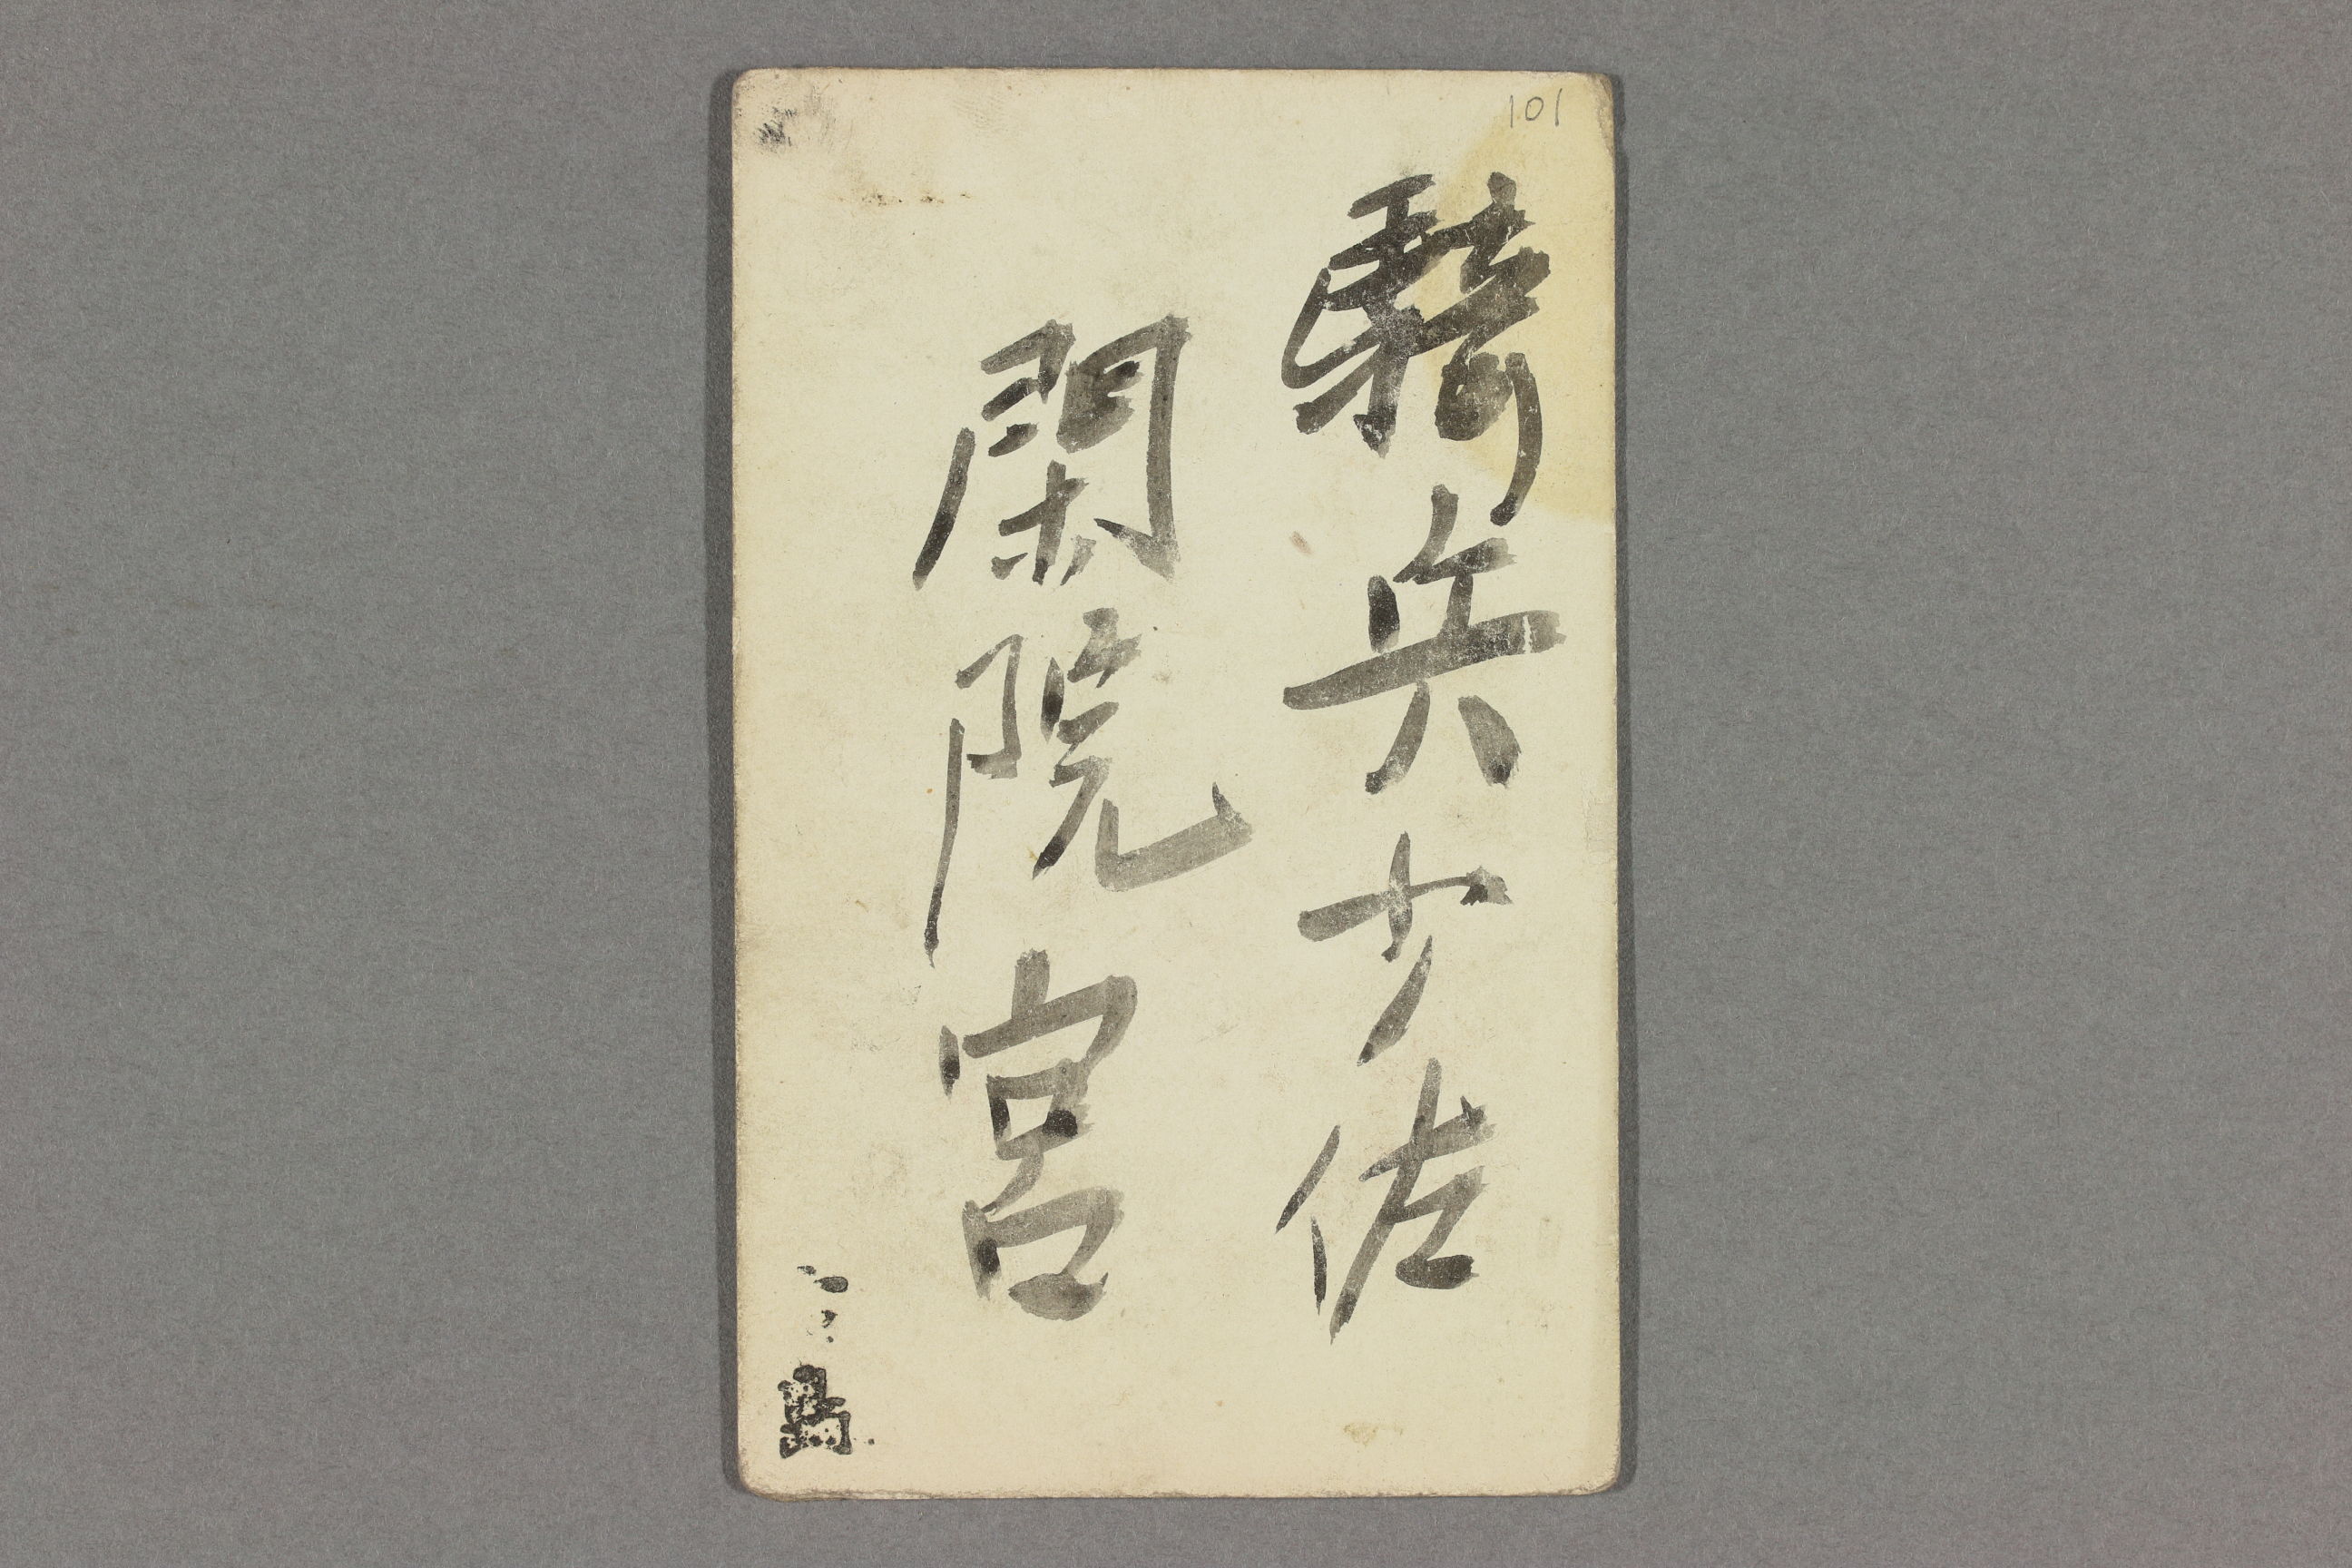 101
騎兵少佐
閑院宮